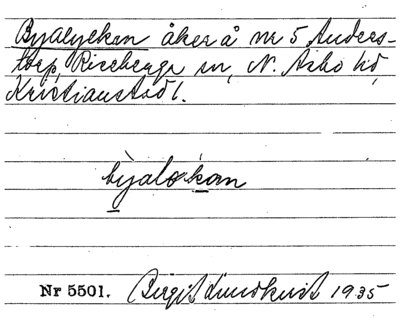 Byalyckan åker å nr 5 Anders-
torp, Riseberga sn, N. Åsbo hd,
Kristianstad l.
byalokan
Nr 5501. Birgit Lundkvist 1935